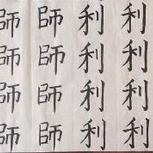 利利利利
利利利利
師師師師
師師師師